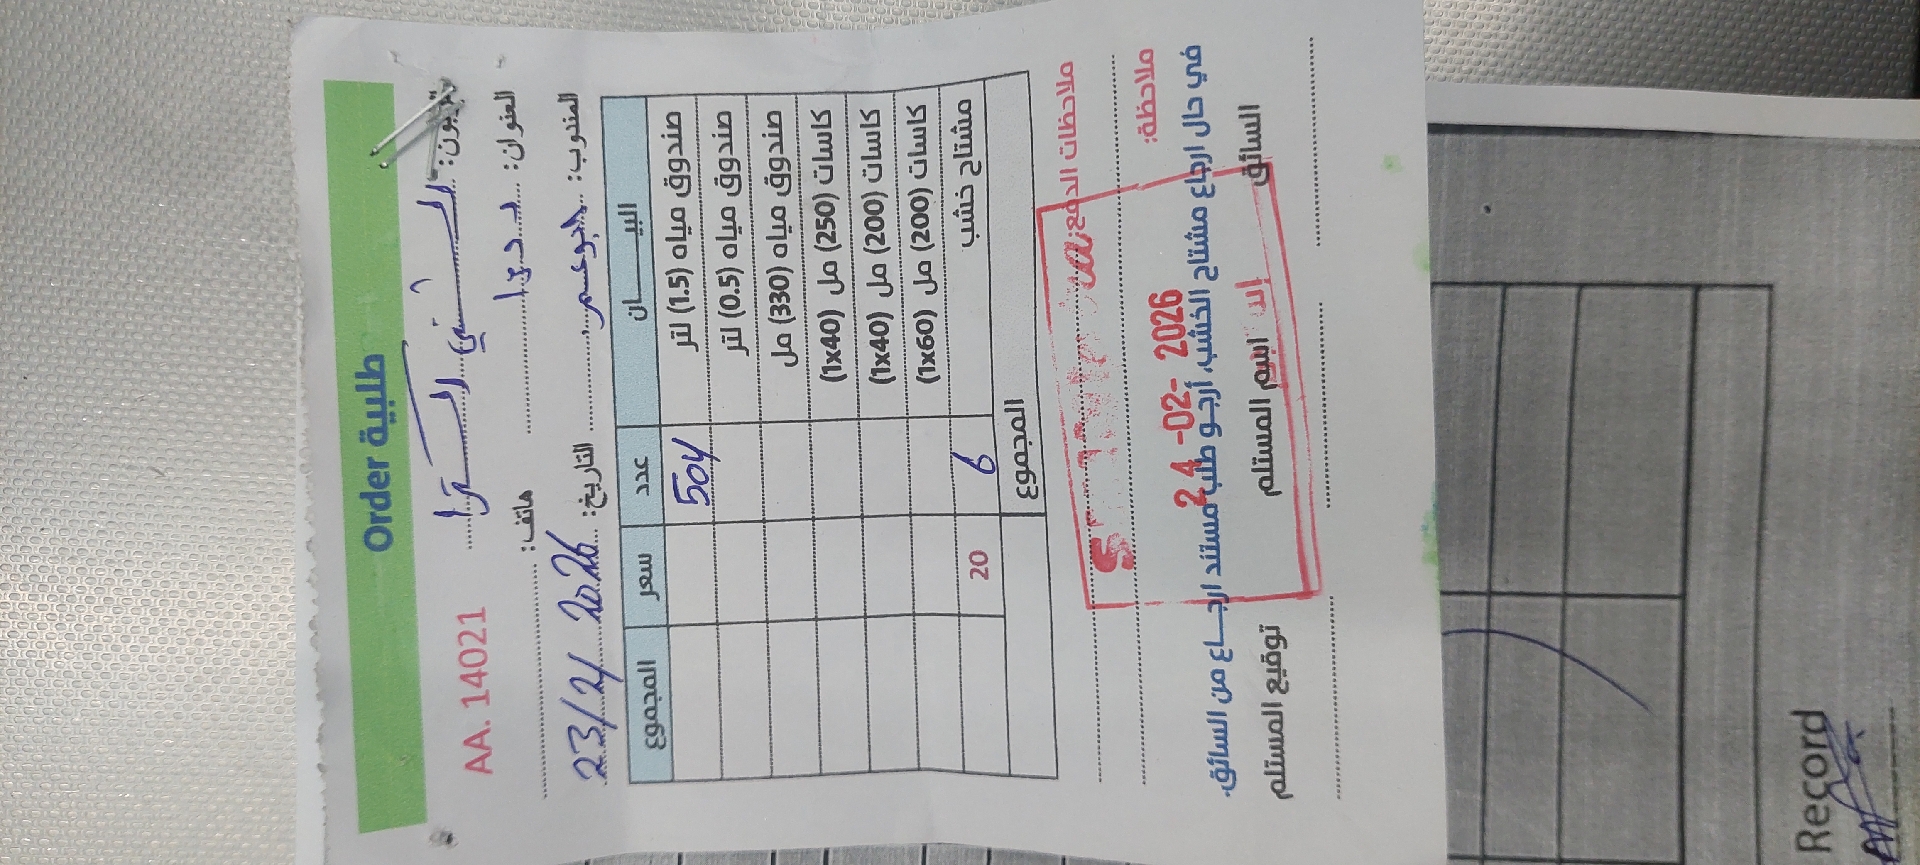 Order طلبية
AA. 14021
هاتف:
العنوان:
23/2/2026 التاريخ:
المندوب: ابو عمر
البيـــــــان عدد سعر المجموع
صندوق مياه (1.5) لتر 504
صندوق مياه (0.5) لتر
صندوق مياه (330) مل
كاسات (250) مل (1x40)
كاسات (200) مل (1x40)
كاسات (200) مل (1x60)
مشتاح خشب 6 20
المجموع
ملاحظات الدفع:
ملاحظة:
في حال ارجاع مشتاح الخشب، أرجـو طلب مستند ارجـــاع من السائق.
24-02-2026
السائق اسم المستلم توقيع المستلم
Record